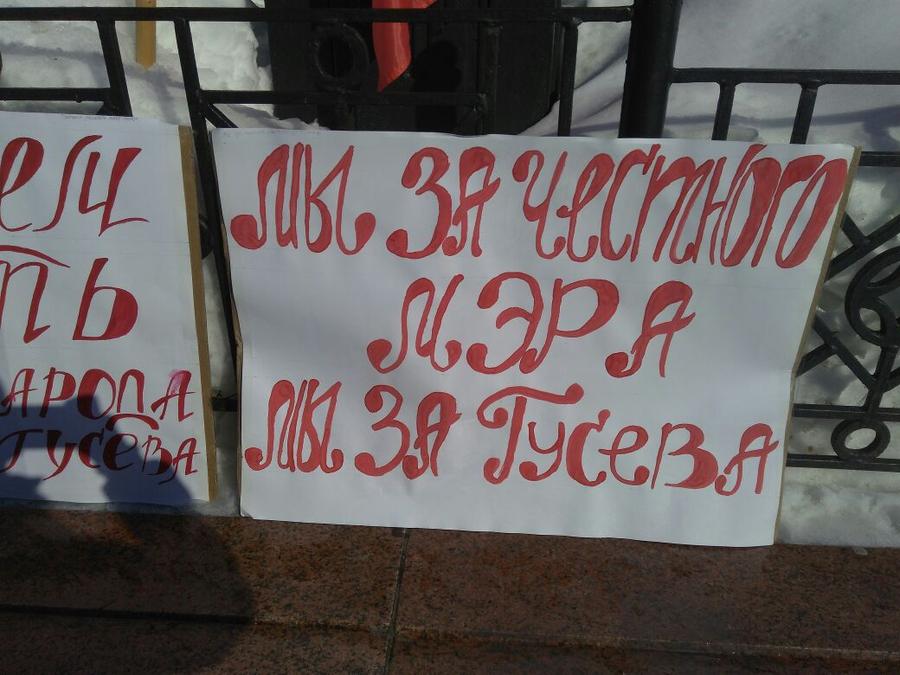 МЫ ЗА ЧЕСТНОГО
МЭРА
МЫ ЗА ГУСЕВА
ТЬ
ГУСЕВА